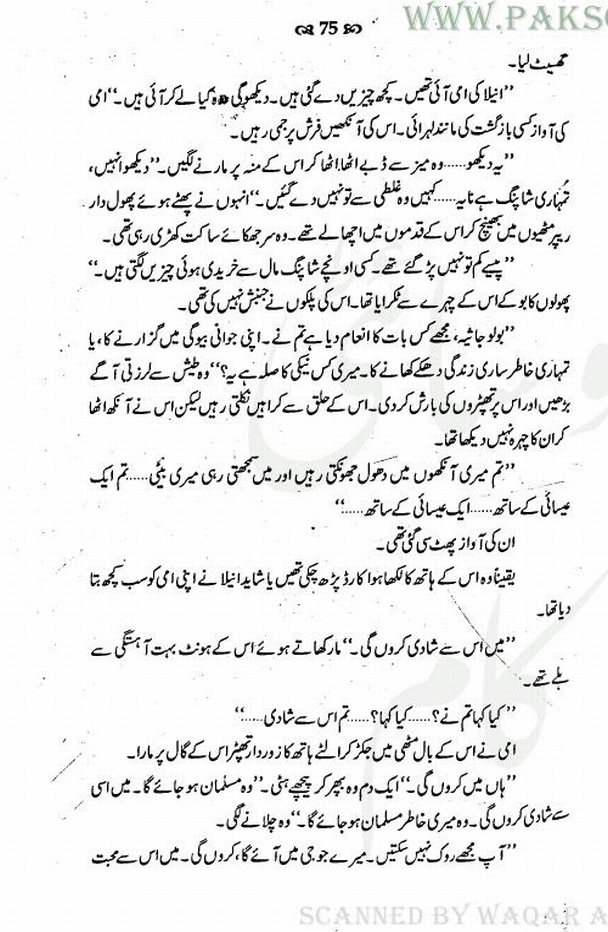 WWW.PAKSO
75
گھسیٹ لیا۔
’’انیلا کی امی آئی تھیں۔ کچھ چیزیں دے گئی ہیں۔ دیکھو گی وہ کیا لے کر آئی ہیں۔‘‘ امی
کی آواز کسی بازگشت کی مانند لہرائی۔ اس کی آنکھیں فرش پر جمی رہیں۔
’’یہ دیکھو...... وہ میز سے ڈبے اٹھا اٹھا کر اس کے منہ پر مارنے لگیں۔ ’’دیکھو انہیں،
تمہاری شاپنگ ہے نا یہ...... کہیں وہ غلطی سے تو نہیں دے گئیں۔‘‘ انہوں نے پھٹے ہوئے پھول دار
ریپر مٹھیوں میں بھینچ کر اس کے قدموں میں اچھالے تھے۔ وہ سر جھکائے ساکت کھڑی رہی تھی۔
’’پیسے کم تو نہیں پڑ گئے تھے۔ کسی اونچے شاپنگ مال سے خریدی ہوئی چیزیں لگتی ہیں۔‘‘
پھولوں کا بوکے اس کے چہرے سے ٹکرایا تھا۔ اس کی پلکوں نے جنبش نہیں کی تھی۔
’’بولو جاثیہ، مجھے کس بات کا انعام دیا ہے تم نے۔ اپنی جوانی بیوگی میں گزارنے کا، یا
تمہاری خاطر ساری زندگی دھکے کھانے کا۔ میری کس نیکی کا صلہ ہے یہ؟‘‘ وہ طیش سے لرزتی آگے
بڑھیں اور اس پر تھپڑوں کی بارش کر دی۔ اس کے حلق سے کراہیں نکلتی رہیں لیکن اس نے آنکھ اٹھا
کر ان کا چہرہ نہیں دیکھا تھا۔
’’تم میری آنکھوں میں دھول جھونکتی رہیں اور میں سمجھتی رہی میری بیٹی...... تم ایک
عیسائی کے ساتھ...... ایک عیسائی کے ساتھ......‘‘
ان کی آواز پھٹ سی گئی تھی۔
یقیناً وہ اس کے ہاتھ کا لکھا ہوا کارڈ پڑھ چکی تھیں یا شاید انیلا نے اپنی امی کو سب کچھ بتا
دیا تھا۔
’’میں اس سے شادی کروں گی۔‘‘ مار کھاتے ہوئے اس کے ہونٹ بہت آہستگی سے
ہلے تھے۔
’’کیا کہا تم نے؟...... کیا کہا؟...... تم اس سے شادی......‘‘
امی نے اس کے بال مٹھی میں جکڑ کر الٹے ہاتھ کا زوردار تھپڑ اس کے گال پر مارا۔
’’ہاں میں کروں گی۔‘‘ ایک دم وہ بپھر کر پیچھے ہٹی۔ ’’وہ مسلمان ہو جائے گا۔ میں اسی
سے شادی کروں گی۔ وہ میری خاطر مسلمان ہو جائے گا۔‘‘ وہ چلانے لگی۔
’’آپ مجھے روک نہیں سکتیں۔ میرے جو جی میں آئے گا، کروں گی۔ میں اس سے محبت
SCANNED BY WAQAR A